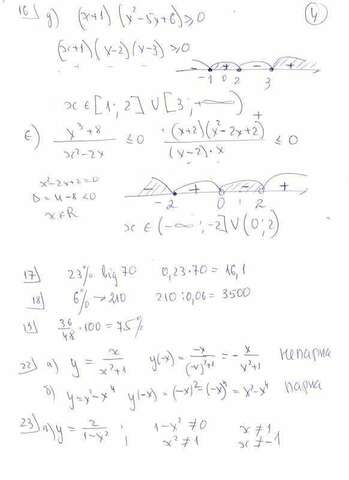 16 д) (x+1)(x²-5x+6)≥0
4
(x+1)(x-2)(x-3)≥0
- -1 + 0 2 - 3 +
x∈[1;2]∨[3;+∞)
е) x³+8 / x²-2x ≤0 (x+2)(x²-2x+2) / (x-2)·x ≤0
+
x²-2x+2=0
D=4-8<0
x∈R
- -2 + 0 - 2 +
x∈(-∞;-2]∨(0;2)
17) 23% від 70 0,23·70=16,1
18) 6%→210 210:0,06=3500
19) 36/48·100=75%
22) а) y= x/x²+1 y(-x)= -x/(-x)²+1 = - x/x²+1 непарна
б) y=x²-x⁴ y(-x)=(-x)²-(-x)⁴=x²-x⁴ парна
23) а) y= 2/1-x² ; 1-x²≠0 x≠1
x²≠1 x≠-1